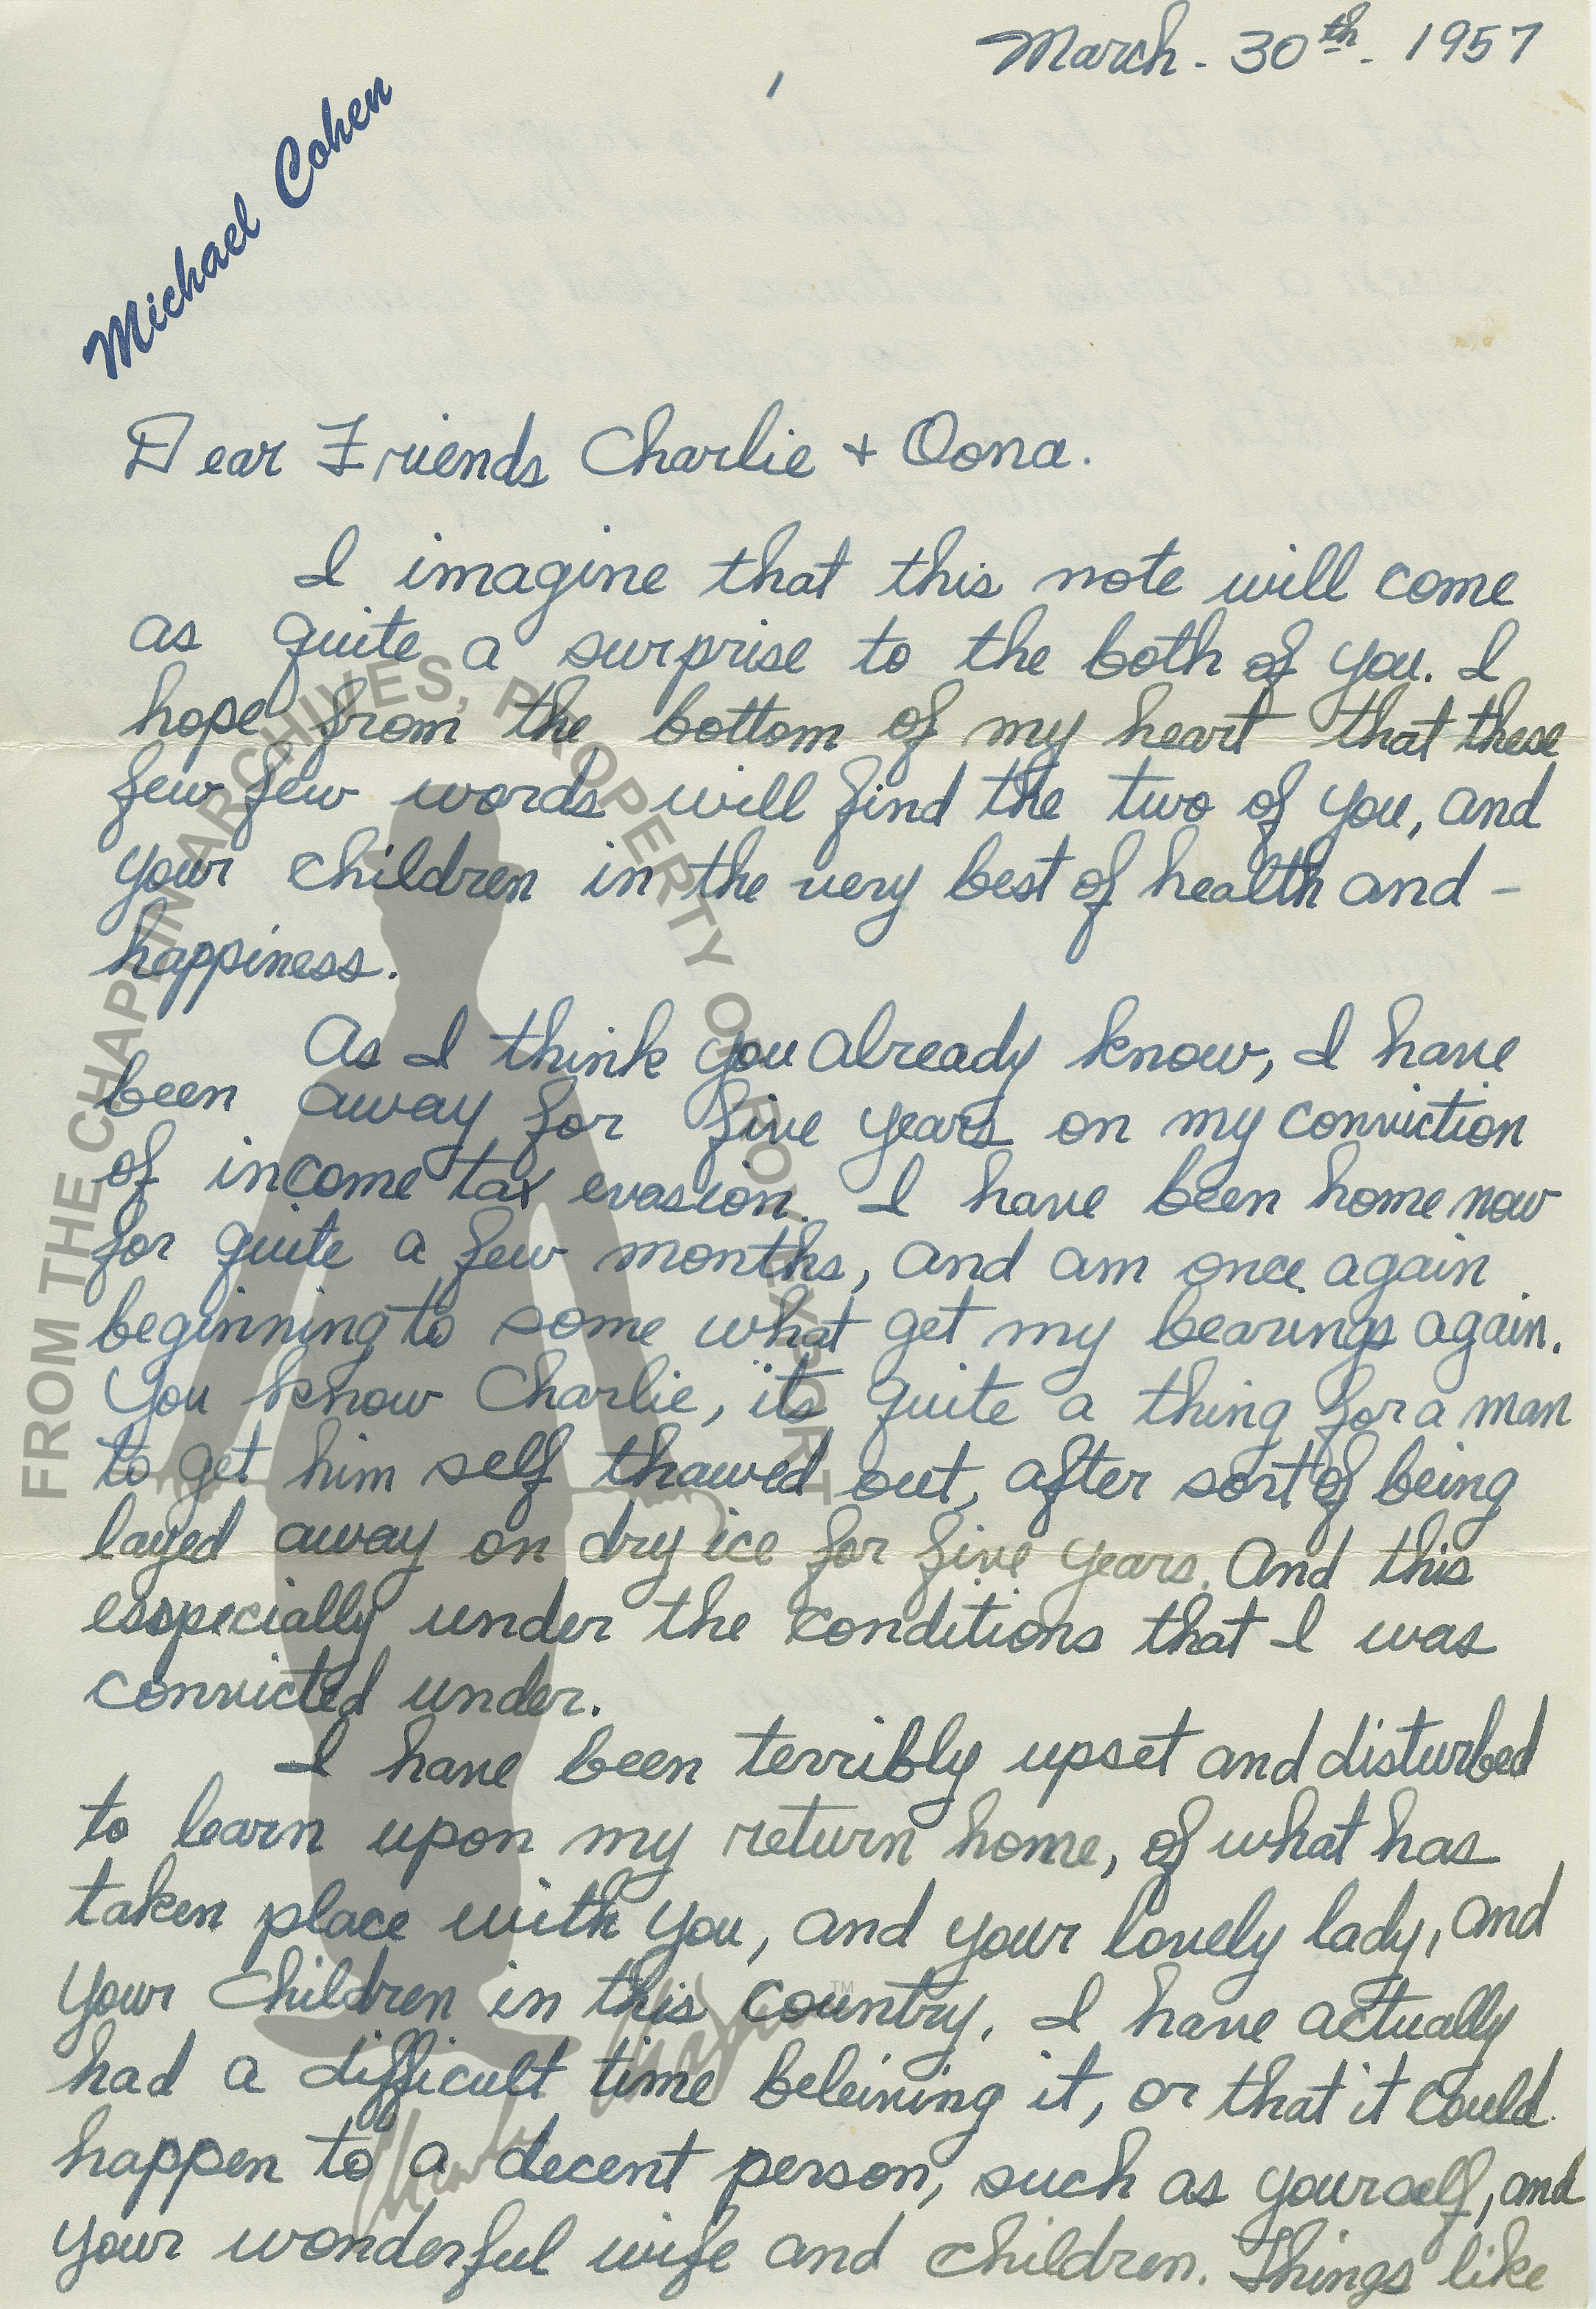 March - 30th - 1957
Michael Cohen
Dear Friends Charlie + Oona.
I imagine that this note will come
as quite a surprise to the both of you. I
hope from the bottom of my heart that these
few few words will find the two of you, and
your children in the very best of health and -
happiness.
As I think you already know, I have
been away for five years on my conviction
of income tax evasion. I have been home now
for quite a few months, and am once again
beginning to some what get my bearings again.
You know Charlie, its quite a thing for a man
to get him self thawed out, after sort of being
layed away on dry ice for five years. And this
esspecially under the conditions that I was
convicted under.
I have been terribly upset and disturbed
to learn upon my return home, of what has
taken place with you, and your lovely lady, and
your children in this country. I have actually
had a difficult time beleiving it, or that it could
happen to a decent person, such as yourself, and
your wonderful wife and children. Things like
FROM THE CHAPLIN ARCHIVES, PROPERTY OF ROY EXPORT
TM